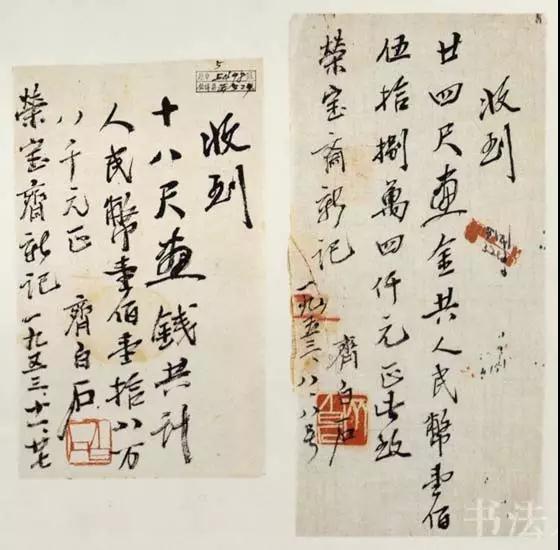 收到
廿四尺畫金共人民幣壹佰
伍拾捌萬四仟元正此致
榮宝齋新記
齊白石
一九五三、八、八号
收到
十八尺畫錢共計
人民幣壹佰壹拾八万
八千元正 齊白石
榮宝齋新記 一九五三.十一.廿七
书法